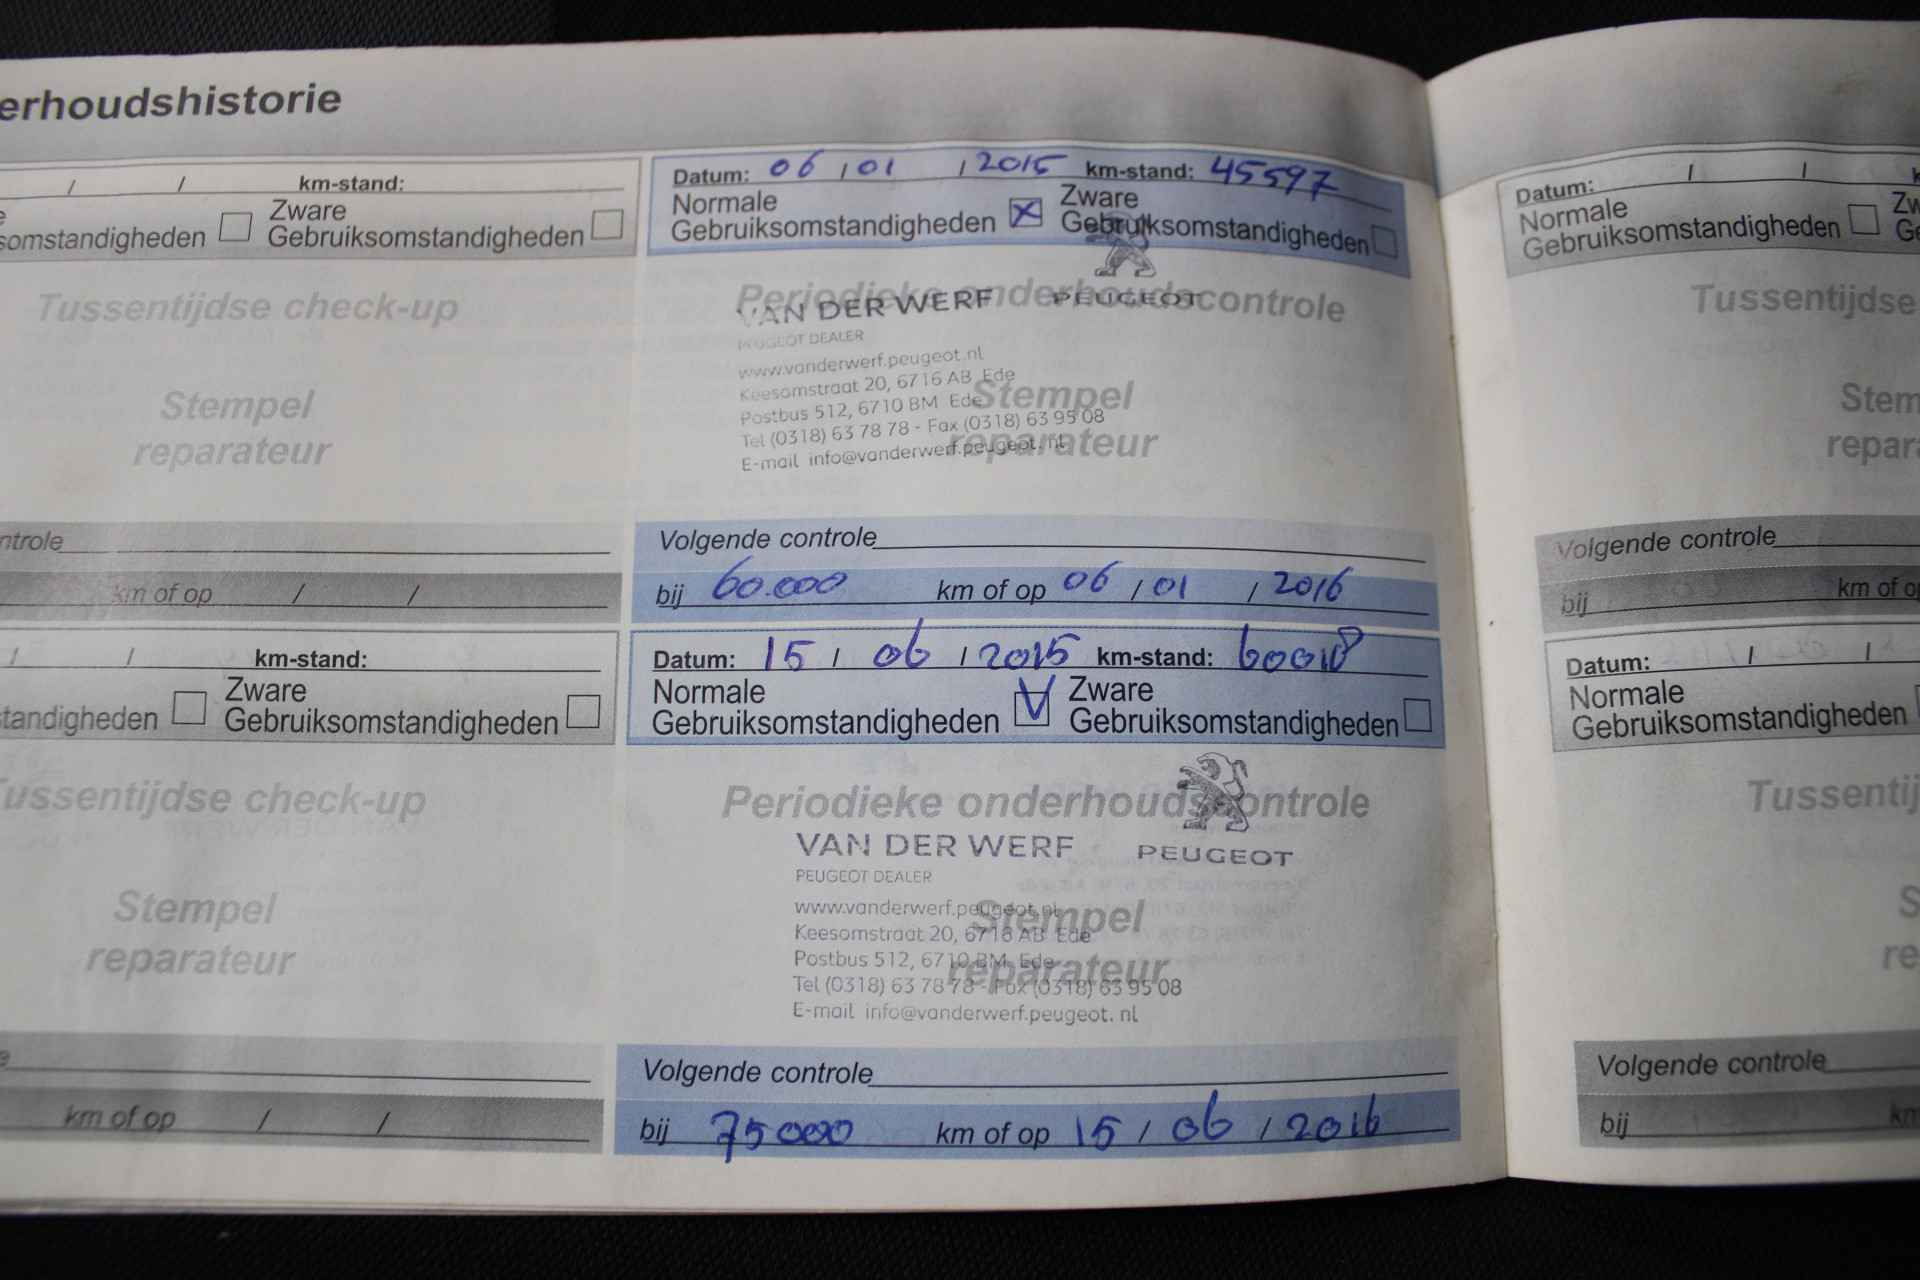 erhoudshistorie
/ / km-stand:
somstandigheden Zware
Gebruiksomstandigheden
Tussentijdse check-up
Stempel
reparateur
ntrole
km of op / /
/ / km-stand:
tandigheden Zware
Gebruiksomstandigheden
Tussentijdse check-up
Stempel
reparateur
km of op / /
Datum: 06 / 01 / 2015 km-stand: 45597
Normale
Gebruiksomstandigheden Zware
Gebruiksomstandigheden
Periodieke onderhoudscontrole
VAN DER WERF PEUGEOT
PEUGEOT DEALER
www.vanderwerf.peugeot.nl
Keesomstraat 20, 6716 AB Ede
Postbus 512, 6710 BM Ede
Tel (0318) 63 78 78 - Fax (0318) 63 95 08
E-mail info@vanderwerf.peugeot.nl
Stempel
reparateur
Volgende controle
bij 60.000 km of op 06 / 01 / 2016
Datum: 15 / 06 / 2015 km-stand: 60018
Normale
Gebruiksomstandigheden Zware
Gebruiksomstandigheden
Periodieke onderhoudscontrole
VAN DER WERF PEUGEOT
PEUGEOT DEALER
www.vanderwerf.peugeot.nl
Keesomstraat 20, 6716 AB Ede
Postbus 512, 6710 BM Ede
Tel (0318) 63 78 78 - Fax (0318) 63 95 08
E-mail info@vanderwerf.peugeot.nl
Stempel
reparateur
Volgende controle
bij 75000 km of op 15 / 06 / 2016
Datum: / /
Normale
Gebruiksomstandigheden
Tussentijdse
Stem
repara
Volgende controle
bij km of op
Datum: / /
Normale
Gebruiksomstandigheden
Tussentij
S
re
Volgende controle
bij km